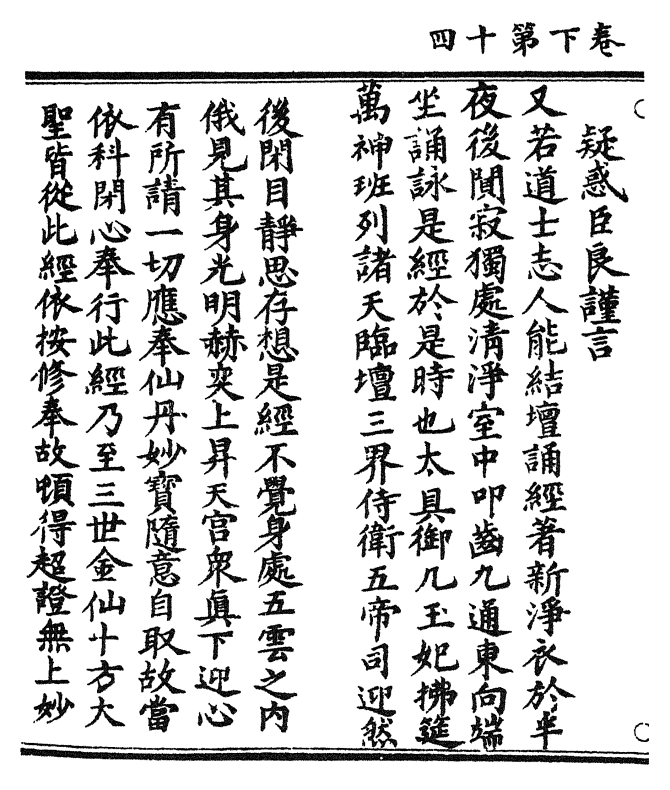 卷下第十四
疑惑臣良謹言
又若道士志人能結壇誦經著新淨衣於半
夜後閴寂獨處清淨室中叩齒九通東向端
坐誦詠是經於是時也太具御几玉妃拂筵
萬神班列諸天臨壇三界侍衛五帝司迎然
後閑目靜思存想是經不覺身處五雲之內
俄見其身光明赫奕上昇天宮衆眞下迎心
有所請一切應奉仙丹妙寶隨意自取故當
依科閑心奉行此經乃至三世金仙十方大
聖皆從此經依按修奉故頓得超證無上妙